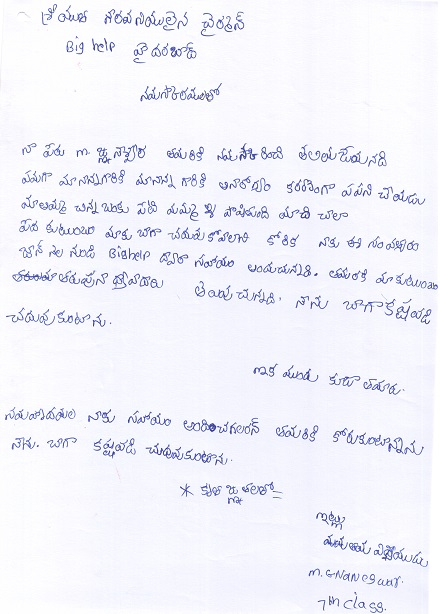 శ్రీయుత గౌరవనీయులైన చైర్మన్
Big help హైదరబాద్
నమస్కారములతో
నా పేరు m. జ్ఞానేశ్వర తమరికి నమస్కరించి తెలియజేయునది
ఏమనగా మా నాన్నగారికి మా నాన్న గారికి అనారోగ్యం కారణంగా ఏపని చేయడు
మా అమ్మ చిన్న బంకు పెట్టి మమ్మల్ని పోషిస్తుంది మాది చాలా
పేద కుటుంబం మాకు బాగా చదువుకోవాలని కోరిక నాకు ఈ సంవత్సరం
జూన్ నెల నుండి Bighelp ద్వారా సహాయం అందుచున్నది. తమరికి మా కుటుంబం
తరుపునా ధన్యవాదాలు తెలుపుచున్నది. నేను బాగా కష్టపడి
చదువుకుంటాను.
ఇక ముందు కుడా తమరు
సహృదయతల నాకు సహాయం అందించగలరని తమరికి కోరుకుంటున్నాను
నేను. బాగా కష్టపడి చదువుకుంటాను.
* కృతజ్ఞతలతో =
ఇట్లు
తమ విధేయుడు
m. GNANeswar.
7th class.